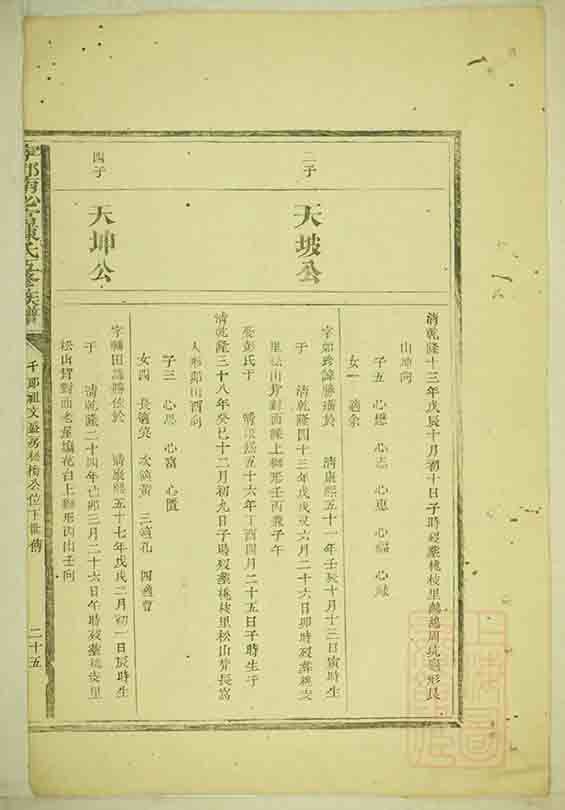 清乾隆十三年戊辰十月初十日子時歿葬桃枝里鵝鴣周坑廻形艮
山坤向
子五 心想 心志 心惠 心福 心
女一 適余
二子
天坡公
字如珍諱勝瑤於 清康熙五十一年壬辰十月十三日寅時生
于 清乾隆四十三年戊戌六月二十六日卯時歿葬桃枝
里松山背對面 上獅形壬丙兼子午
娶彭氏于 清康熙五十六年丁酉四月二十五日子時生于
清乾隆三十八年癸巳十二月初九日子時歿葬桃枝里松山背長窩
人形卯山酉向
子三 心 心富 心
女四 長適吳 次適黃 三適孔 四適曾
四子
天坤公
字 田諱勝 於 清康熙五十七年戊戌二月初一日辰時生
于 清乾隆二十四年己卯三月二十六日午時歿葬桃枝里
松山背對面老屋 花台上獅形丙山壬向
氏五修族譜
千郎祖文 房 公位下世傳
二十五